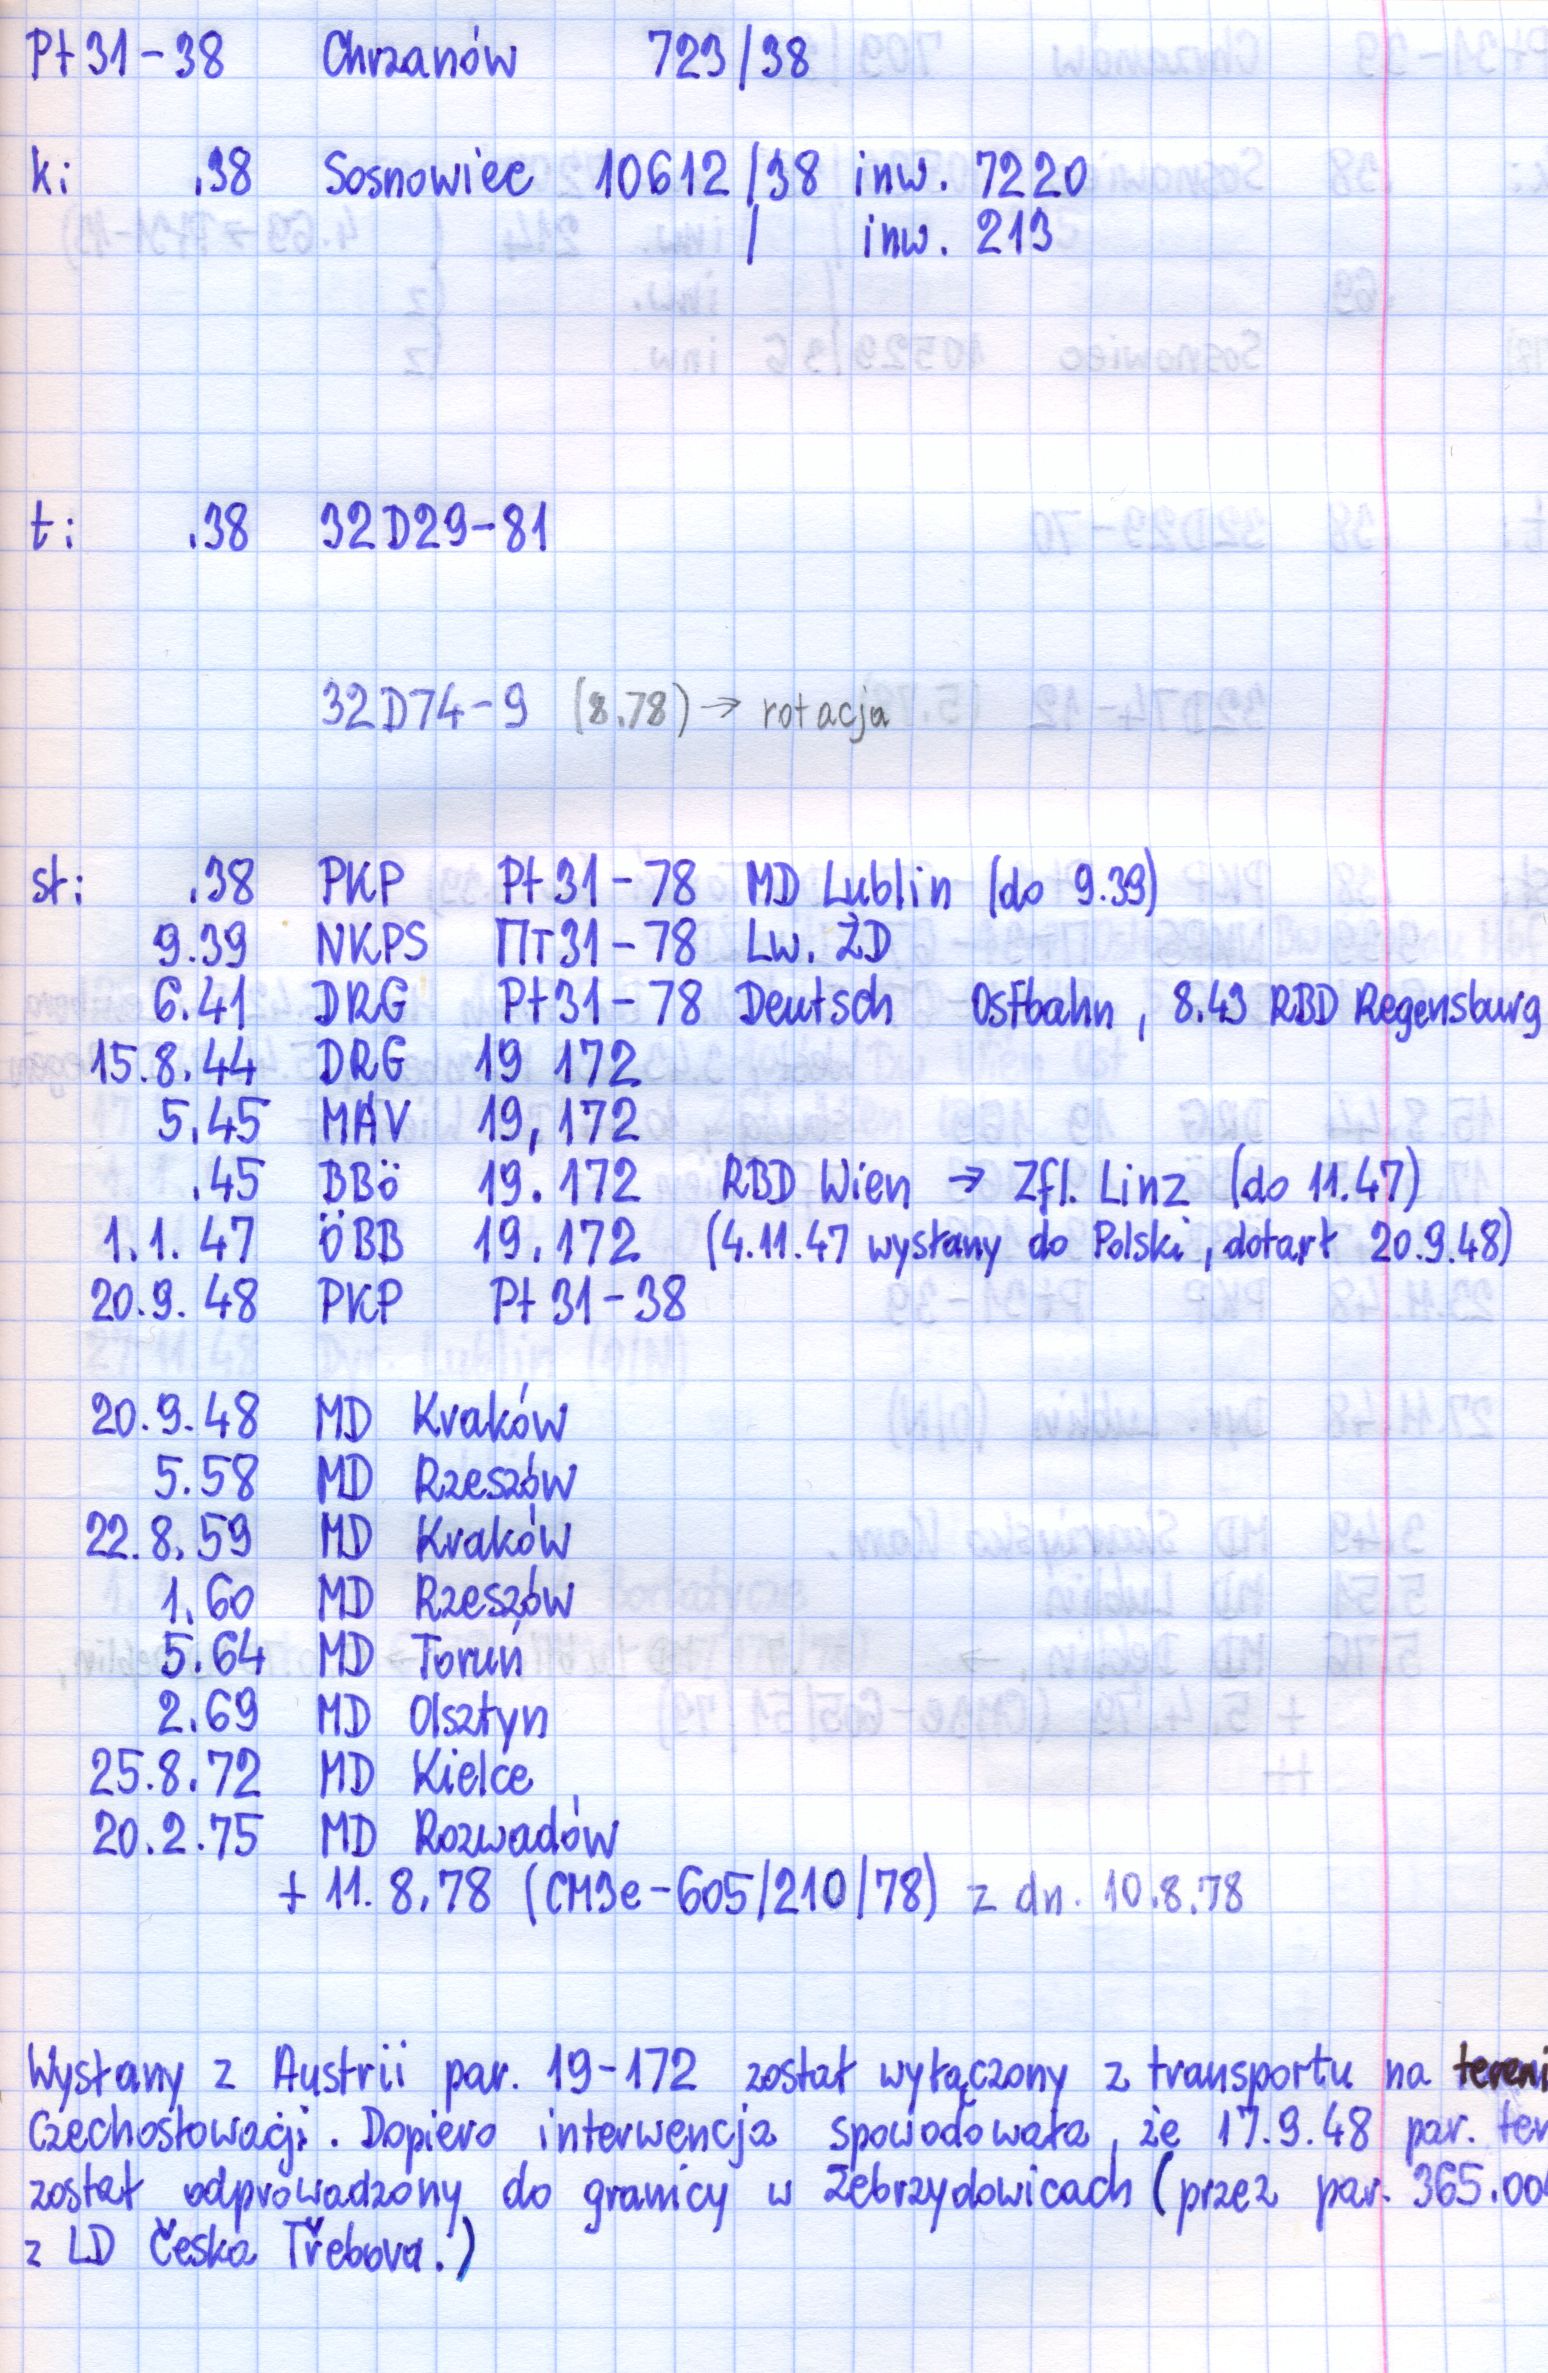 Pt 31-38 Chrzanów 723/38
k: .38 Sosnowiec 10612/38 inw. 7220
/ inw. 213
t: .38 32D29-81
32D74-9 (8.78) → rotacja
st: .38 PKP Pt 31-78 MD Lublin (do 9.39)
9.39 NKPS Пт31-78 Lw. ŻD
6.41 DRG Pt31-78 Deutsch Ostbahn, 8.43 RBD Regensburg
15.8.44 DRG 19 172
5.45 MÁV 19,172
.45 BBö 19.172 RBD Wien → Zfl. Linz (do 11.47)
1.1.47 ÖBB 19.172 (4.11.47 wysłany do Polski, dotarł 20.9.48)
20.9.48 PKP Pt 31-38
20.9.48 MD Kraków
5.58 MD Rzeszów
22.8.59 MD Kraków
1.60 MD Rzeszów
5.64 MD Toruń
2.69 MD Olsztyn
25.8.72 MD Kielce
20.2.75 MD Rozwadów
+ 11.8.78 (CM3e-605/210/78) z dn. 10.8.78
Wysłany z Austrii par. 19-172 został wyłączony z transportu na tereni
Czechosłowacji. Dopiero interwencja spowodowała, że 17.9.48 par. ten
został odprowadzony do granicy w Zebrzydowicach (przez par. 365.00
z LD Česka Třebova.)